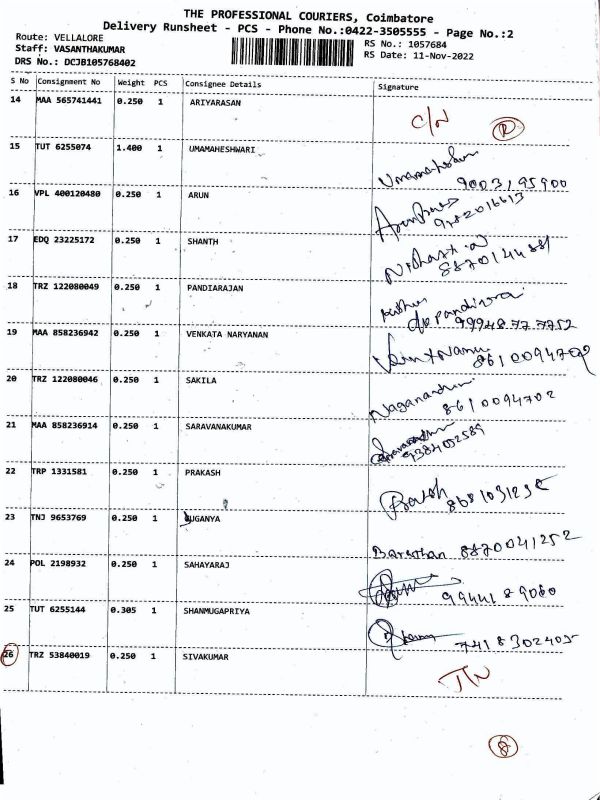 THE PROFESSIONAL COURIERS, Coimbatore
Delivery Runsheet - PCS - Phone No.:0422-3505555 - Page No.:2
Route: VELLALORE
Staff: VASANTHAKUMAR
DRS No.: DCJB105768402
RS No.: 1057684
RS Date: 11-Nov-2022
S No Consignment No Weight PCS Consignee Details Signature
14 MAA 565741441 0.250 1 ARIYARASAN C/N
15 TUT 6255074 1.400 1 UMAMAHESHWARI
9003195900
16 VPL 400120480 0.250 1 ARUN
17 EDQ 23225172 0.250 1 SHANTH
18 TRZ 122080049 0.250 1 PANDIARAJAN
19 MAA 858236942 0.250 1 VENKATA NARYANAN
20 TRZ 122080046 0.250 1 SAKILA
8610094702
21 MAA 858236914 0.250 1 SARAVANAKUMAR
22 TRP 1331581 0.250 1 PRAKASH
23 TNJ 9653769 0.250 1 SUGANYA
8870041252
24 POL 2198932 0.250 1 SAHAYARAJ
25 TUT 6255144 0.305 1 SHANMUGAPRIYA
26 TRZ 53840019 0.250 1 SIVAKUMAR